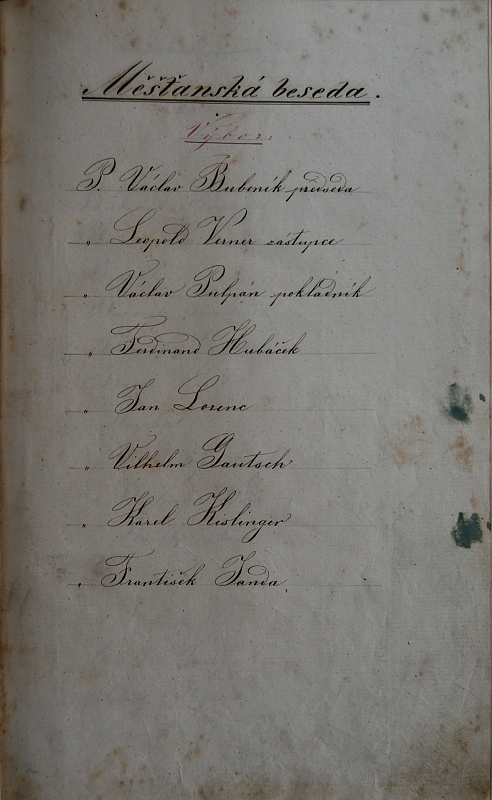 Měšťanská beseda.
Výbor:
P. Václav Bubeník předseda
„ Leopold Verner zástupce
„ Václav Pulpán pokladník
„ Ferdinand Hubáček
„ Jan Lorenc
„ Vilhelm Gautsch
„ Karel Kislinger
„ František Janda